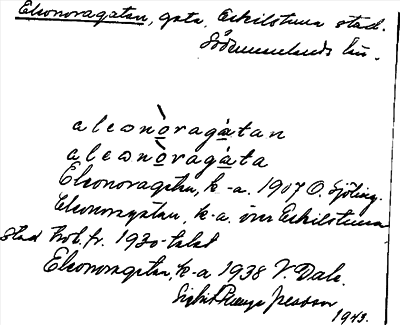 Eleonoragatan, gata, Eskilstuna stad.
Södermanlands län.
aleonòragàtan
aleonòragàta
Eleonoragatan, k-a. 1907 O. Sjöling.
Eleonoragatan, k-a. över Eskilstuna
stad trol. fr. 1930-talet
Eleonoragatan, k-a 1938 V. Dahl.
Persson
1943.